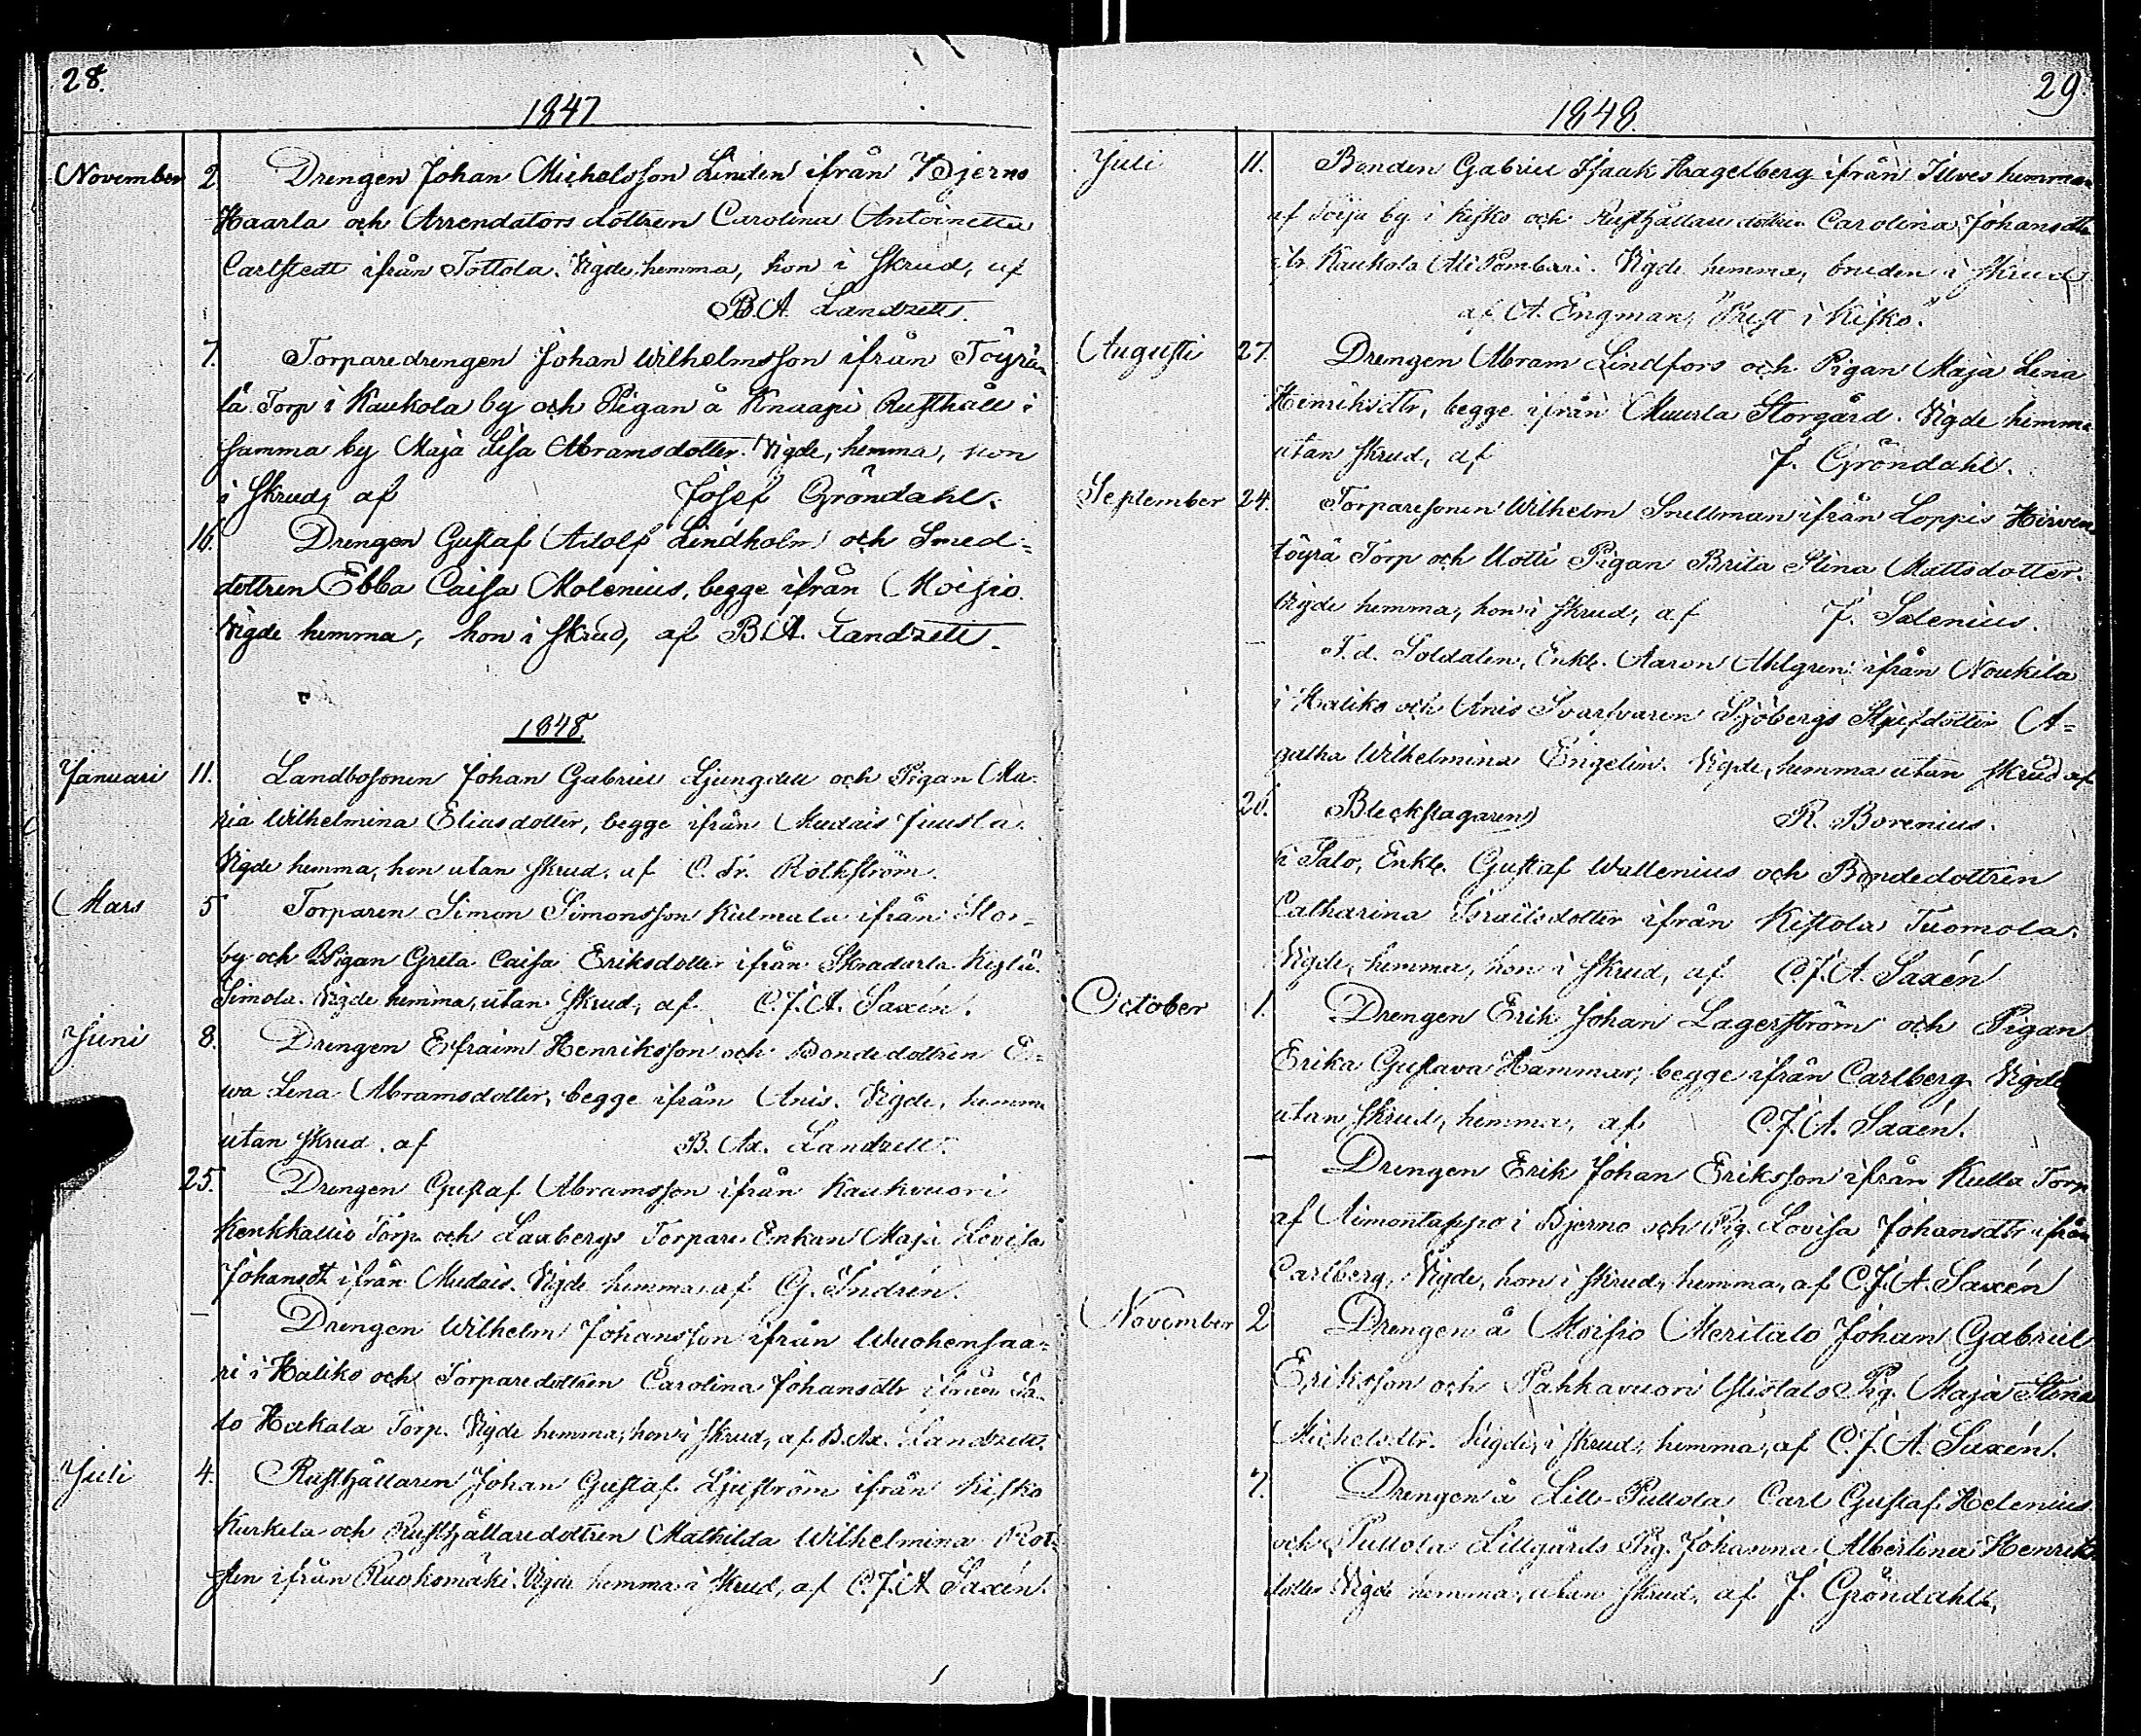 28.
1847
November 2 Drengen Johan Michelsson Lindén ifrån Bjerno
Haarla och Arrendators dottren Carolina Antoinetta
Carlstedt ifrån Tottola. Vigde, hemma, hon i skrud, af
B.A. Landzett.
7. Torparedrengen Johan Wilhelmsson ifrån Töyrän
lä Torp i Kaukola by och Pigan å Knaapi Rusthåll i
samma by Maja Lisa Abramsdotter. Vigde, hemma, hon
i skrud, af Josef Gröndahl.
16. Drengen Gustaf Adolf Lindholm och Smed-
dottren Ebba Caisa Molenius, begge ifrån Moisio.
Vigde hemma, hon i skrud, af B.A. Landzett.
1848
Januari 11. Landbosonen Johan Gabriel Ljungdell och Pigan Ma-
ria Wilhelmina Eliasdotter, begge ifrån Mudais Juusla.
Vigde hemma, hon utan skrud, af C. Fr. Rothström.
Mars 5 Torparen Simon Simonsson Kulmala ifrån
by och Pigan Greta Caisa Eriksdotter ifrån
Simola. Vigde hemma, utan skrud, af C.J.A. Saxén.
Juni 8. Drengen Erfraim Henriksson och Bondedottren E-
va Lena Abramsdotter, begge ifrån Anis. Vigde, hemma
utan skrud, af B. Ax. Landzett.
25. Drengen Gustaf Abramsson ifrån Kaukvuori
Kenkkallio Torp och Laxbergs Torpare Enkan Maja Lovisa
Johansdt ifrån Mudais. Vigde hemma, af G. Indrén.
— Drengen Wilhelm Johansson ifrån Wuohensaa-
ri i Haliko och Torparedottren Carolina Johansdtr ifrån Sa-
lo Hakala Torp. Vigde hemma, hon i skrud, af B. Ax. Landzett.
Juli 4. Rusthållaren Johan Gustaf Ljuström ifrån Kisko
Kurkela och Rusthållaredottren Mathilda Wilhelmina Rot-
sten ifrån Ruokomäki. Vigde hemma i skrud, af C.J.A Saxén.
29.
1848.
Juli 11. Bonden Gabriel Isaak Hagelberg ifrån Ilves hemman
af Toija by i Kisko och Rusthållare dottren Carolina Johansdtr
ifr. Kaukola Ali Pombari. Vigde hemma, bruden i skrud
af A. Engman, Prest i Kisko.
Augusti 27. Drengen Abram Lindfors och Pigan Maja Lena
Henriksdtr, begge ifrån Muurla Storgård. Vigde hemma
utan skrud, af J. Gröndahl.
September 24. Torparesonen Wilhelm Snellman ifrån Loppis Hirven
töyrä Torp och Uotti Pigan Brita Stina Mattsdotter.
Vigde hemma, hon i skrud, af J. Salenius.
— F.d. Soldaten, Enkl. Aaron Ahlgren ifrån Noukila
i Haliko och Anis Svarfvaren Sjöbergs Stjufdotter A-
gatha Wilhelmina Engelin. Vigde, hemma utan skrud af
26. Bleckslagaren R. Borenius.
i Salo, Enkl. Gustaf Wallenius och Bondedottren
Catharina Israelsdotter ifrån Kistola Tuomola.
Vigde, hemma, hon i skrud, af C.J.A. Saxén
October 1. Drengen Erik Johan Lagerström och Pigan
Erika Gustava Hammar, begge ifrån Carlberg. Vigde
utan skrud, hemma, af C.J.A. Saxén.
— Drengen Erik Johan Eriksson ifrån Kulla Torp
af Aimontappo i Bjerno och Pig. Lovisa Johansdtr ifrån
Carlberg. Vigde, hon i skrud, hemma, af C.J.A. Saxén
November 2 Drengen å Moisio Meritalo Johan Gabriel
Eriksson och Pahkavuori Ylistalo Pig. Maja Stina
Michelsdtr. Vigde, i skrud, hemma, af C.J.A. Saxén.
7. Drengen å Lill-Pullola Carl Gustaf Helenius
och Pullola Lillgårds Pig. Johanna Albertina Henriks
dotter Vigde hemma, utan skrud, af J. Gröndahl.